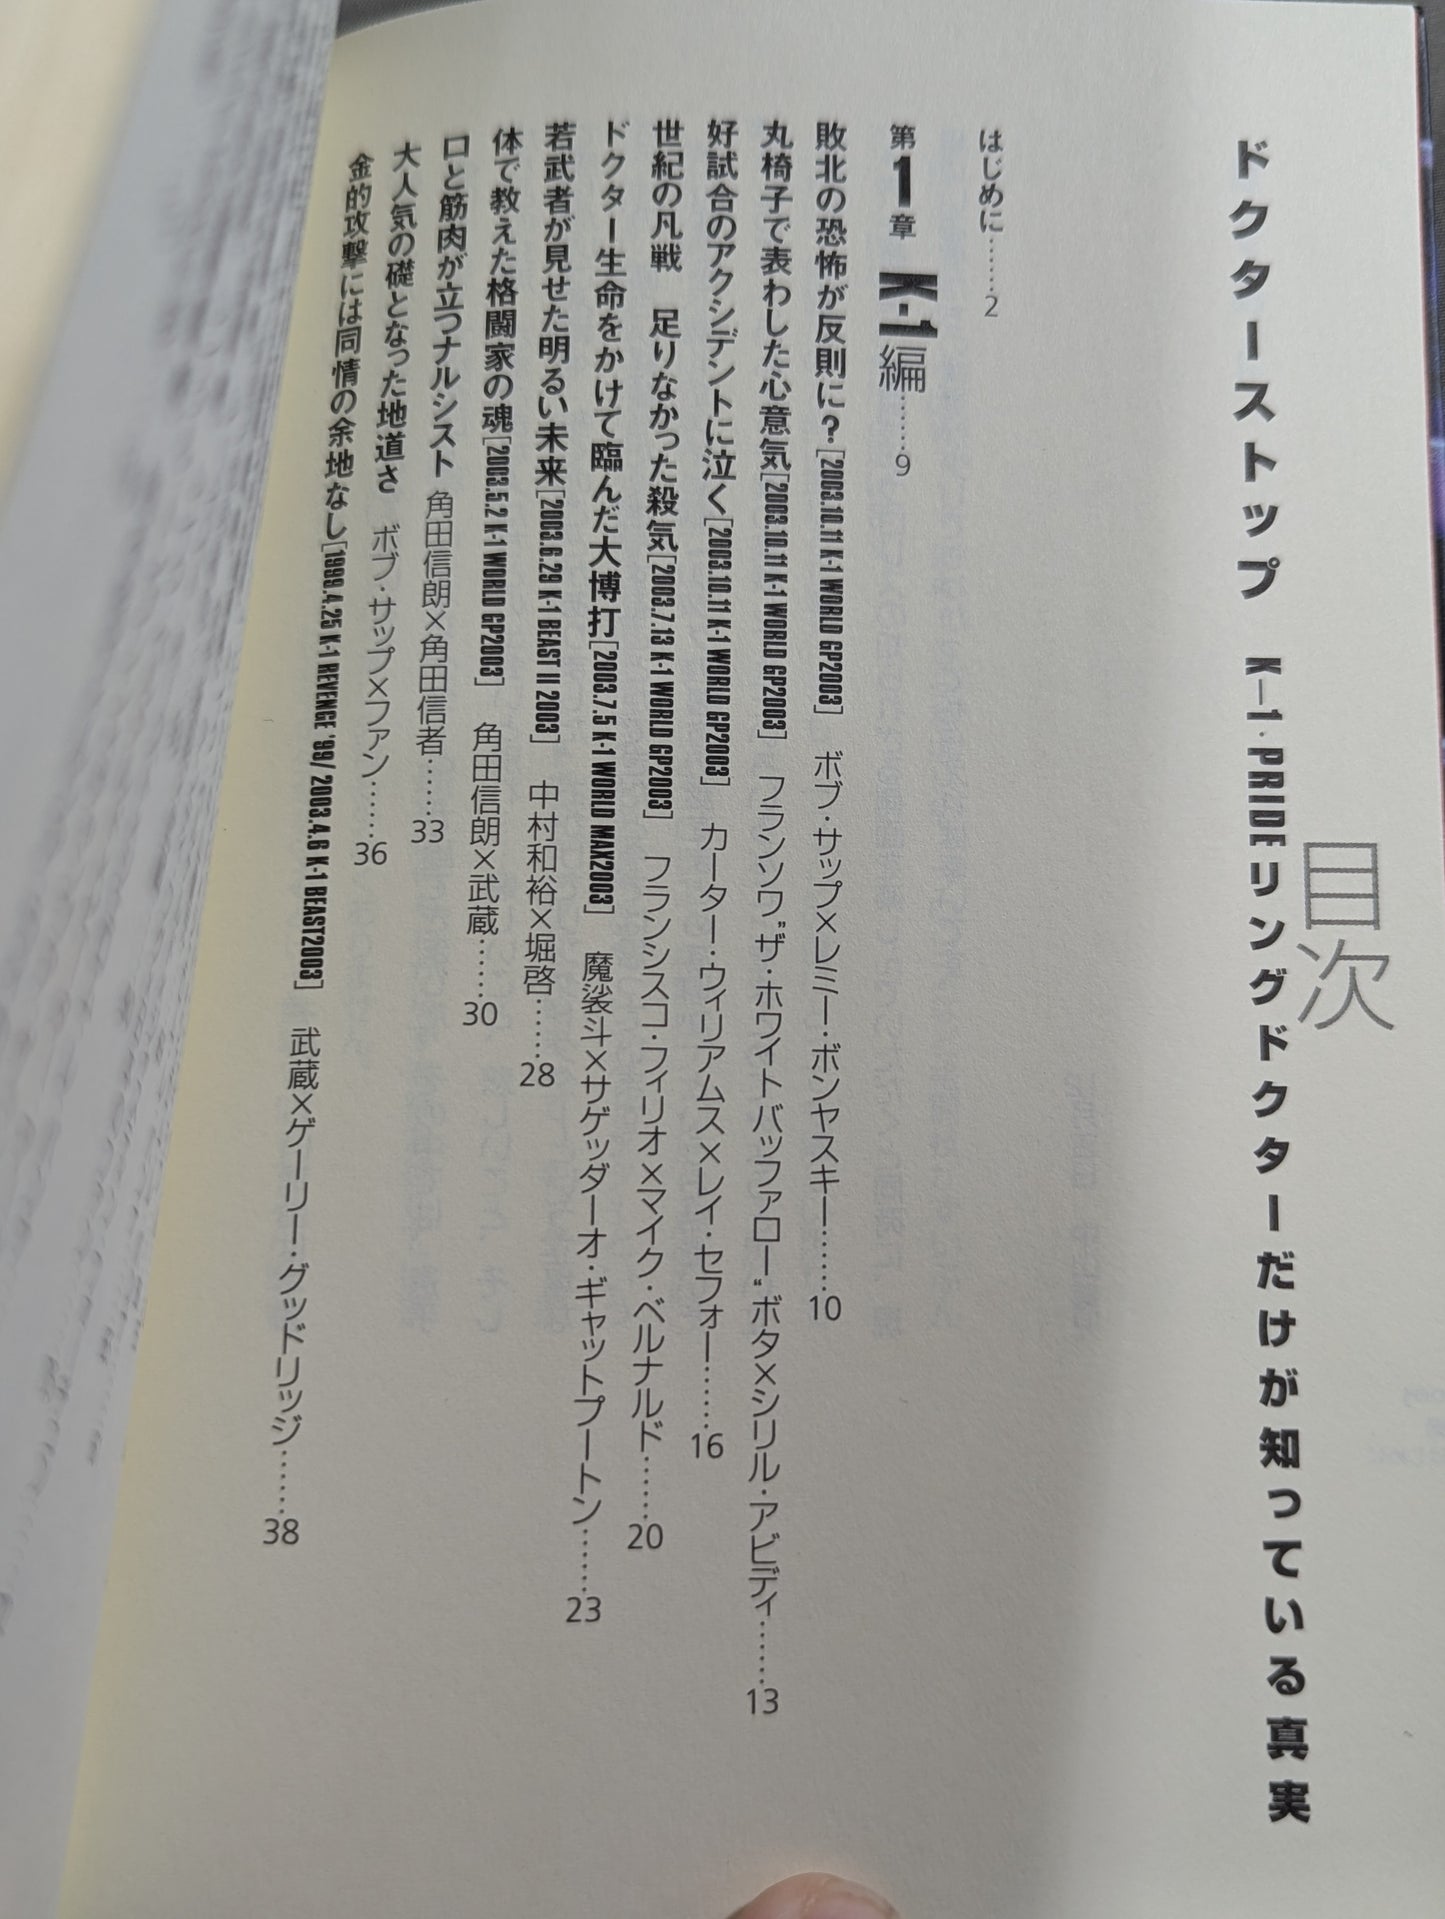 目次
ドクターストップ K-1・PRIDEリングドクターだけが知っている真実
はじめに……2
第1章 K-1編……9
敗北の恐怖が反則に？[2003.10.11 K-1 WORLD GP2003] ボブ・サップ×レミー・ボンヤスキー……10
丸椅子で表わした心意気[2003.10.11 K-1 WORLD GP2003] フランソワ"ザ・ホワイトバッファロー"ボタ×シリル・アビディ……13
好試合のアクシデントに泣く[2003.10.11 K-1 WORLD GP2003] カーター・ウィリアムス×レイ・セフォー……16
世紀の凡戦 足りなかった殺気[2003.7.13 K-1 WORLD GP2003] フランシスコ・フィリオ×マイク・ベルナルド……20
ドクター生命をかけて臨んだ大博打[2003.7.5 K-1 WORLD MAX2003] 魔裟斗×サゲッダーオ・ギャットプートン……23
若武者が見せた明るい未来[2003.6.29 K-1 BEAST II 2003] 中村和裕×堀啓……28
体で教えた格闘家の魂[2003.5.2 K-1 WORLD GP2003] 角田信朗×武蔵……30
口と筋肉が立つナルシスト 角田信朗×角田信者……33
大人気の礎となった地道さ ボブ・サップ×ファン……36
金的攻撃には同情の余地なし[1999.4.25 K-1 REVENGE '99/ 2003.4.6 K-1 BEAST2003] 武蔵×ゲーリー・グッドリッジ……38